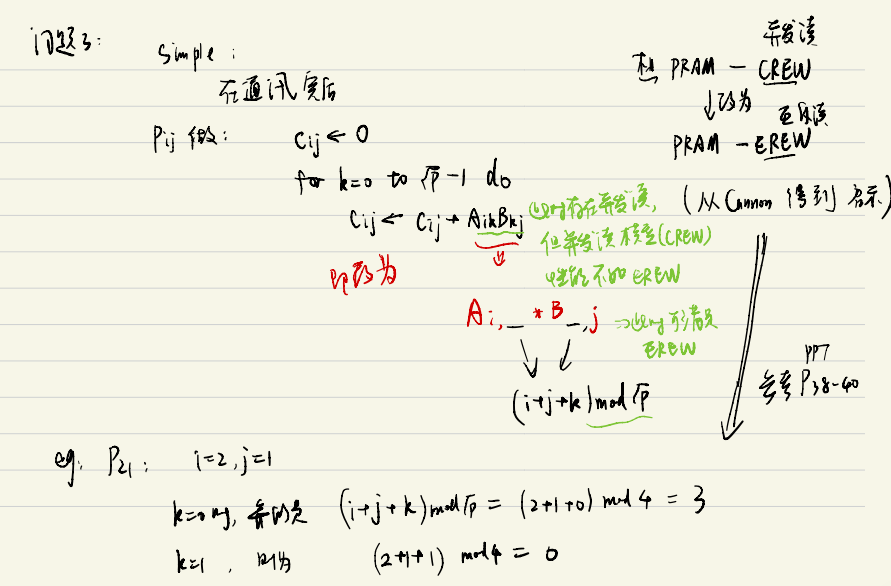 问题3:
Simple:
在通讯完后
Pij 做: Cij ← 0
for k=0 to √p -1 do
Cij ← Cij + AikBkj
此时存在并发读,
但并发读模型(CREW)
性能不如 EREW
即改为
Ai,_ * B_,j
→此时形式是
EREW
(i+j+k) mod √p
并发读
PRAM - CREW
↓改为 互斥读
PRAM - EREW
(从 Cannon 得到启示)
PPT
参考 P38-40
eg: P21: i=2, j=1
k=0时, (i+j+k) mod √p = (2+1+0) mod 4 = 3
k=1, 则为 (2+1+1) mod 4 = 0